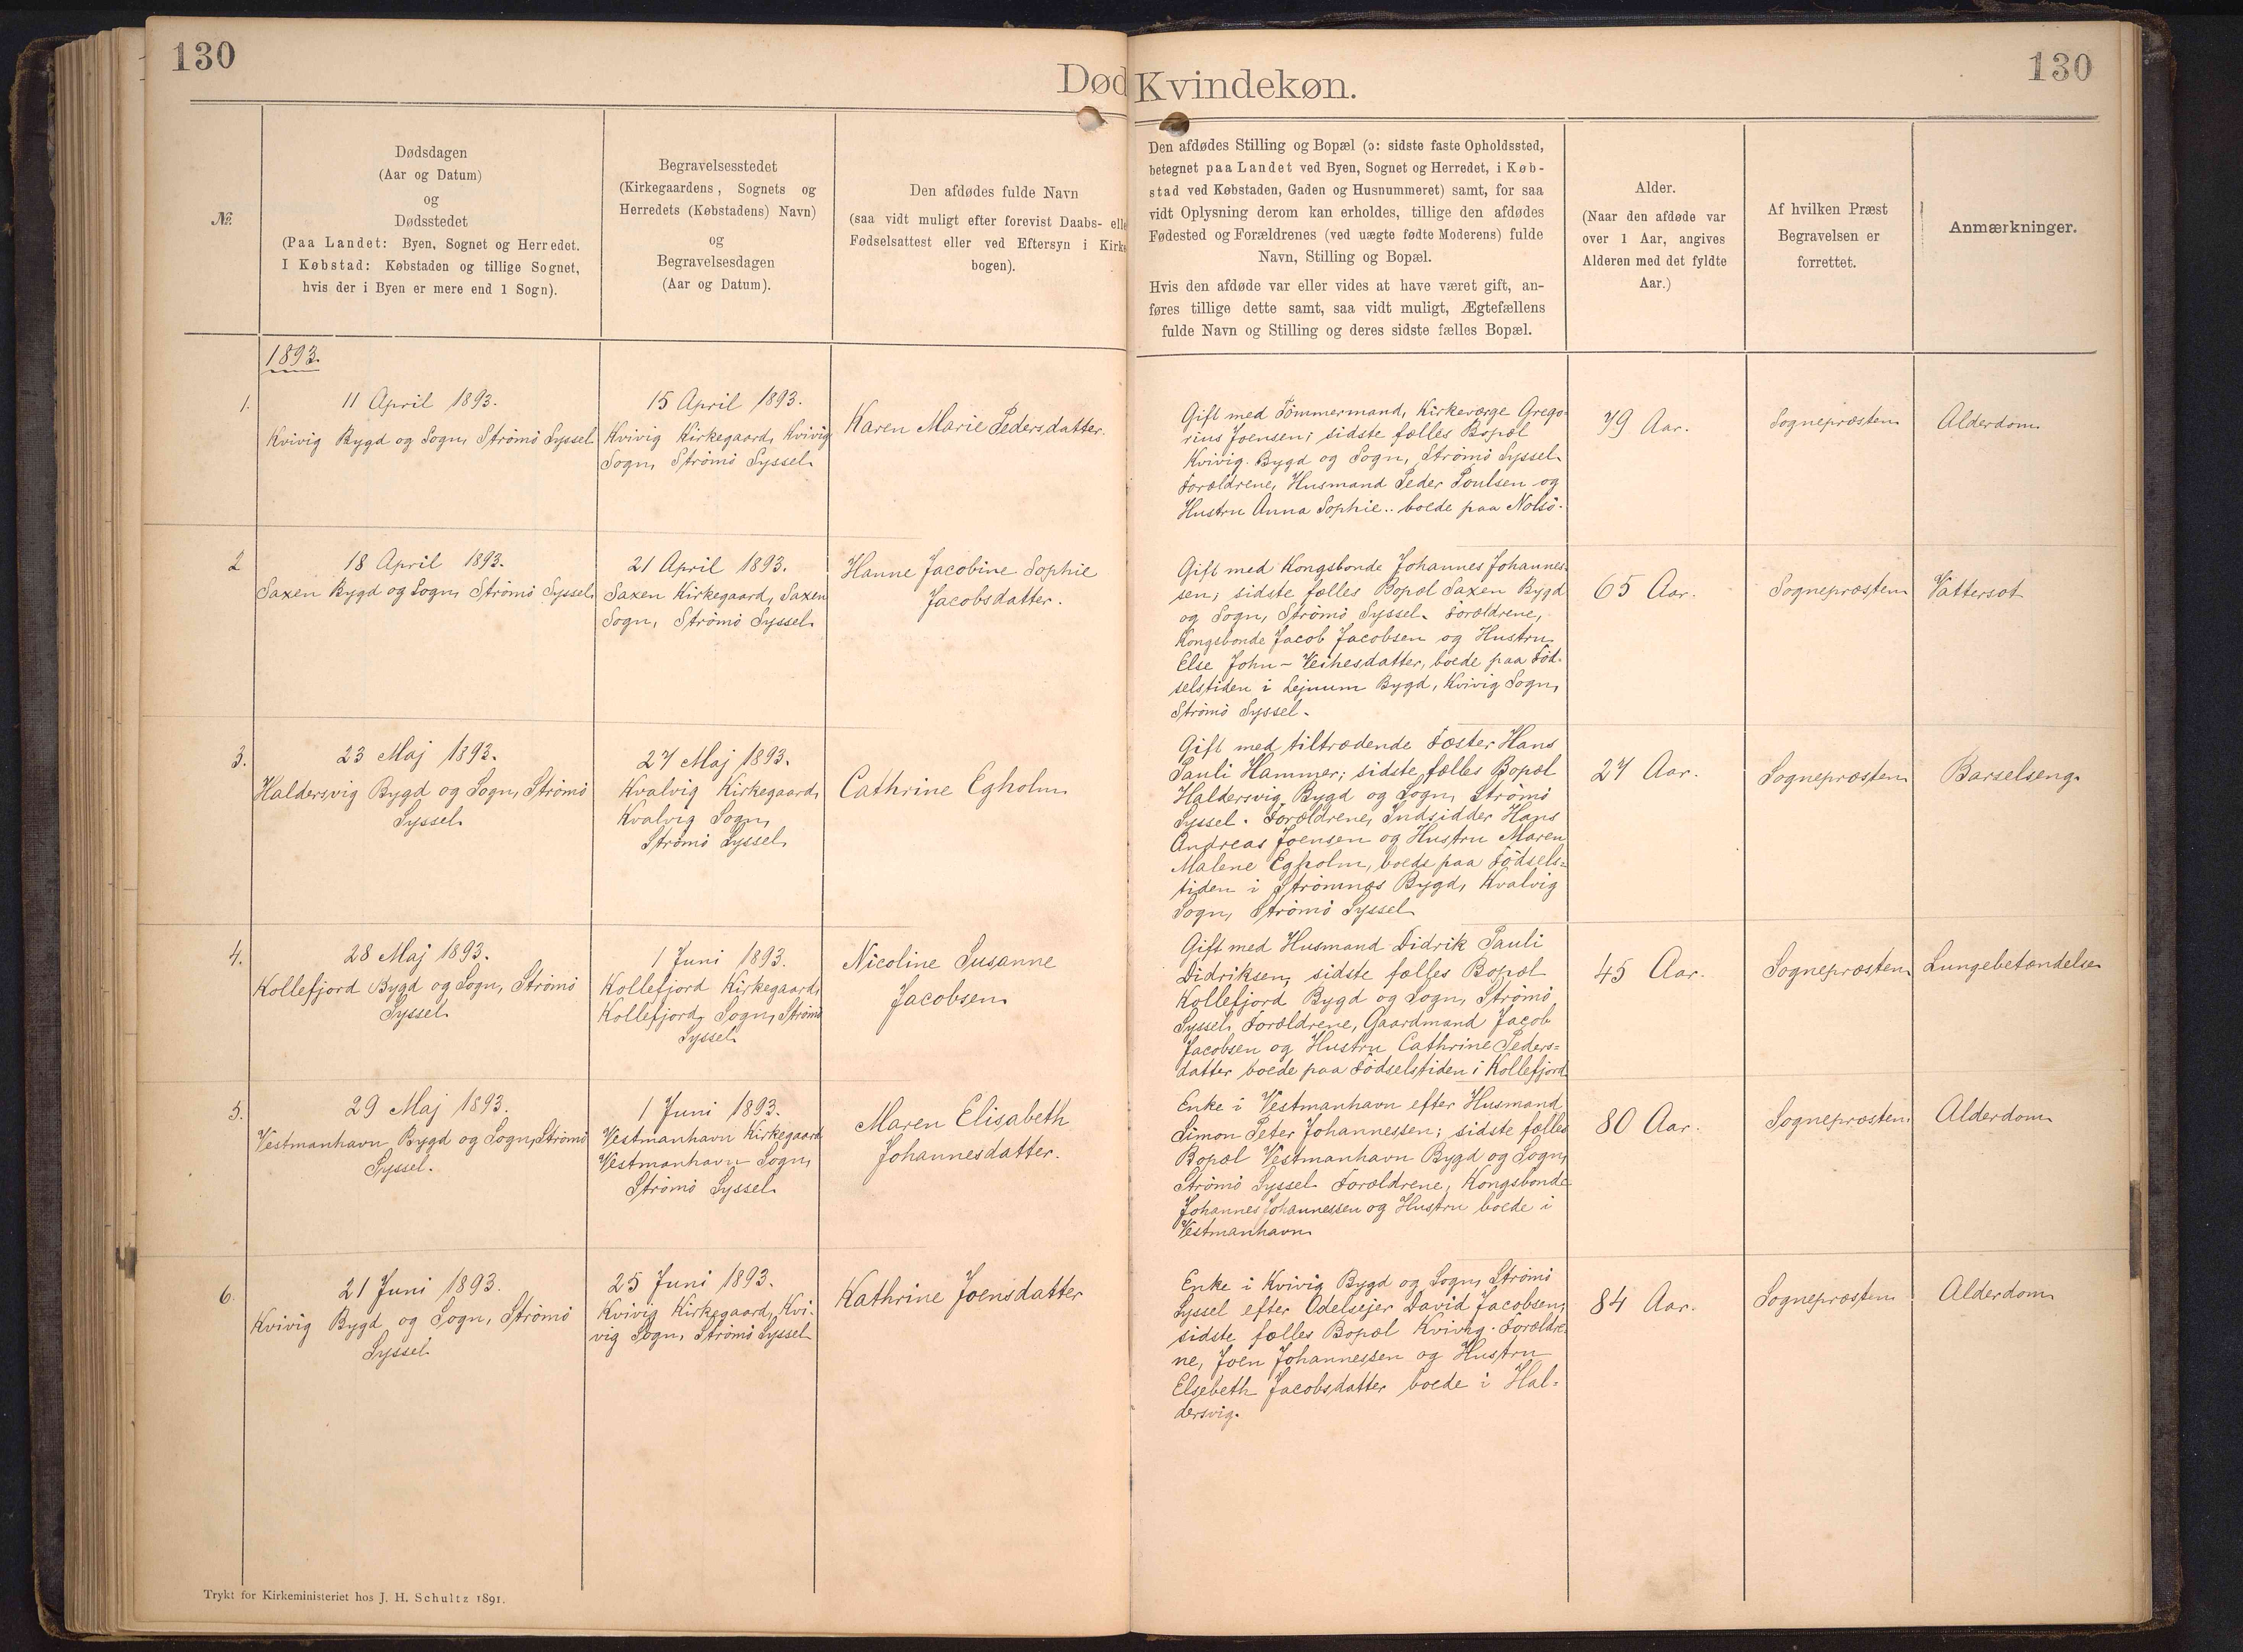 130
130
Død
Kvindekøn.
№
Dødsdagen
(Aar og Datum)
og
Dødsstedet
(Paa Landet: Byen, Sognet og Herredet.
I Købstad: Købstaden og tillige Sognet,
hvis der i Byen er mere end 1 Sogn).
Begravelsesstedet
(Kirkegaardens, Sognets og
Herredets (Købstadens) Navn)
og
Begravelsesdagen
(Aar og Datum).
Den afdødes fulde Navn
(saa vidt muligt efter forevist Daabs- elle
Fødselsattest eller ved Eftersyn i Kirke
bogen).
Den afdødes Stilling og Bopæl (ɔ: sidste faste Opholdssted,
betegnet paa Landet ved Byen, Sognet og Herredet, i Køb-
stad ved Købstaden, Gaden og Husnummeret) samt, for saa
vidt Oplysning derom kan erholdes, tillige den afdødes
Fødested og Forældrenes (ved uægte fødte Moderens) fulde
Navn, Stilling og Bopæl.
Hvis den afdøde var eller vides at have været gift, an-
føres tillige dette samt, saa vidt muligt, Ægtefællens
fulde Navn og Stilling og deres sidste fælles Bopæl.
Alder.
(Naar den afdøde var
over 1 Aar, angives
Alderen med det fyldte
Aar.)
Af hvilken Præst
Begravelsen er
forrettet.
Anmærkninger.
1893.
1.
11 April 1893.
Kvivig Bygd og Sogn, Strömö Syssel.
15 April 1893.
Kvivig Kirkegaard, Kvivig
Sogn, Strömö Syssel.
Karen Marie Pedersdatter.
Gift med Tömmermand, Kirkeværge Grego-
rius Joensen; sidste fælles Bopæl
Kvivig Bygd og Sogn, Strömö Syssel.
Forældrene, Husmand Peder Poulsen og
Hustru Anna Sophie.. boede paa Nolsö.
79 Aar.
Sognepræsten
Alderdom
2
18 April 1893.
Saxen Bygd og Sogn, Strömö Syssel.
21 April 1893.
Saxen Kirkegaard, Saxen
Sogn, Strömö Syssel.
Hanne Jacobine Sophie
Jacobsdatter.
Gift med Kongsbonde Johannes Johannes-
sen; sidste fælles Bopæl Saxen Bygd
og Sogn, Strömö Syssel. Forældrene,
Kongsbonde Jacob Jacobsen og Hustru
Else John - Veihesdatter, boede paa Föd-
selstiden i Lejnum Bygd, Kvivig Sogn,
Strömö Syssel.
65 Aar.
Sognepræsten
Vattersot
3.
23 Maj 1893.
Haldersvig Bygd og Sogn, Strömö
Syssel.
27 Maj 1893.
Kvalvig Kirkegaard,
Kvalvig Sogn,
Strömö Syssel.
Cathrine Egholm
Gift med tiltrædende Fæster Hans
Pauli Hammer; sidste fælles Bopæl
Haldersvig Bygd og Sogn, Strömö
Syssel. Forældrene, Indsidder Hans
Andreas Joensen og Hustru Maren
Malene Egholm, boede paa Födsels=
tiden i Strömnæs Bygd, Kvalvig
Sogn, Strömö Syssel
27 Aar.
Sognepræsten
Barselseng.
4.
28 Maj 1893.
Kollefjord Bygd og Sogn, Strömö
Syssel.
1 Juni 1893.
Kollefjord Kirkegaard,
Kollefjord, Sogn, Strömö
Syssel.
Nicoline Susanne
Jacobsen
Gift med Husmand Didrik Pauli
Didriksen, sidste fælles Bopæl
Kollefjord Bygd og Sogn, Strömö
Syssel. Forældrene, Gaardmand Jacob
Jacobsen og Hustru Cathrine Peders=
datter boede paa Födselstiden i Kollefjord
45 Aar.
Sognepræsten
Lungebetændelse
5.
29 Maj 1893.
Vestmanhavn Bygd og Sogn, Strömö
Syssel.
1 Juni 1893.
Vestmanhavn Kirkegaard
Vestmanhavn Sogn,
Strömö Syssel.
Maren Elisabeth
Johannesdatter.
Enke i Vestmanhavn efter Husmand
Simon Peter Johannessen; sidste fælles
Bopæl Vestmanhavn Bygd og Sogn,
Strömö Syssel. Forældrene, Kongsbonde
Johannes Johannessen og Hustru boede i
Vestmanhavn
80 Aar.
Sognepræsten
Alderdom
6.
21 Juni 1893.
Kvivig Bygd og Sogn, Strömö
Syssel.
25 Juni 1893.
Kvivig Kirkegaard, Kvi-
vig Sogn, Strömö Syssel
Kathrine Joensdatter
Enke i Kvivig Bygd og Sogn, Strömö
Syssel efter Odelsejer David Jacobsen;
sidste fælles Bopæl Kvivig. Forældre-
ne, Joen Johannessen og Hustru
Elsebeth Jacobsdatter boede i Hal-
dersvig.
84 Aar.
Sognepræsten
Alderdom
Trykt for Kirkeministeriet hos J. H. Schultz 1891.